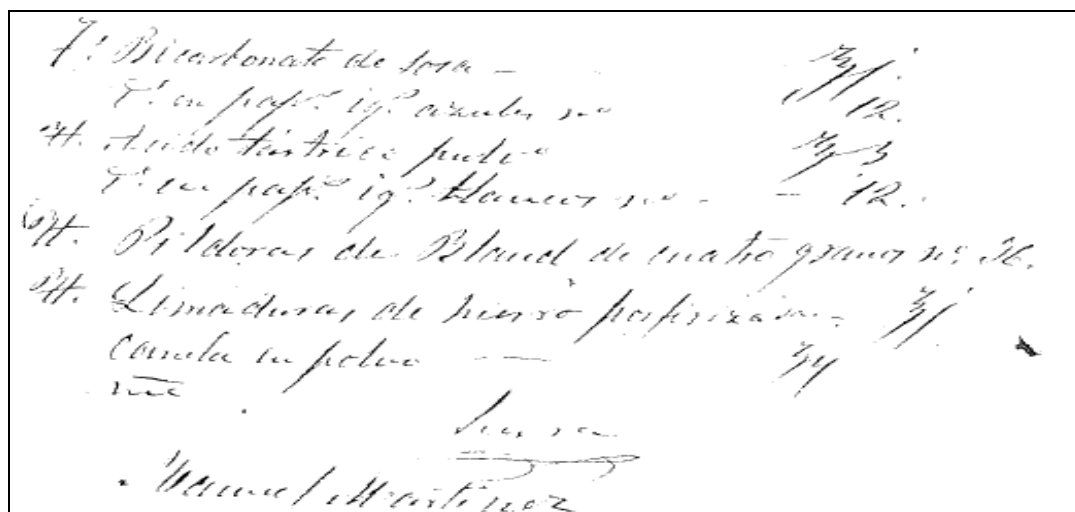 7. Bicarbonato de sosa - ʒj.
T. en pap.s ig.s azules no 12.
H. Acido tartrico pulvo ʒ 3
T. en pap.s ig.s blancos no - - 12.
H. Pildoras de Blaud de cuatro granos no. 36.
H. Limaduras de hierro porfirizadas - ʒj
Canela en polvo — ʒij
me
Manuel Martinez